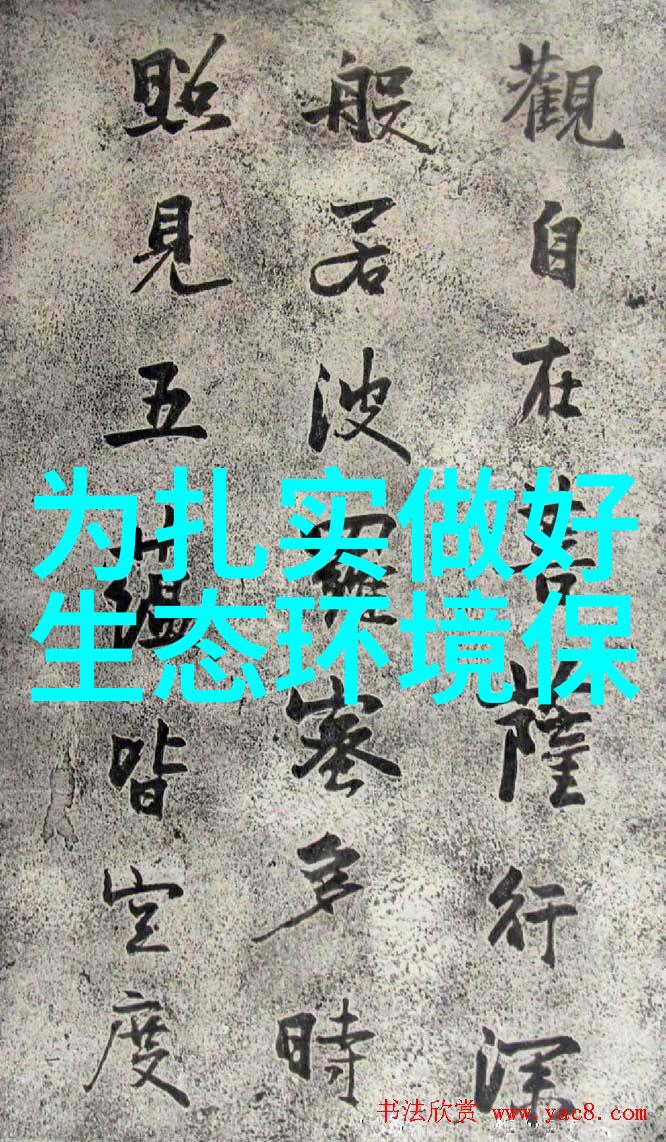 觀自在菩薩行深
般若波羅蜜多時
照見五蘊皆空度
为扎实做好
生态环境保
书法欣赏 www.yac8.com